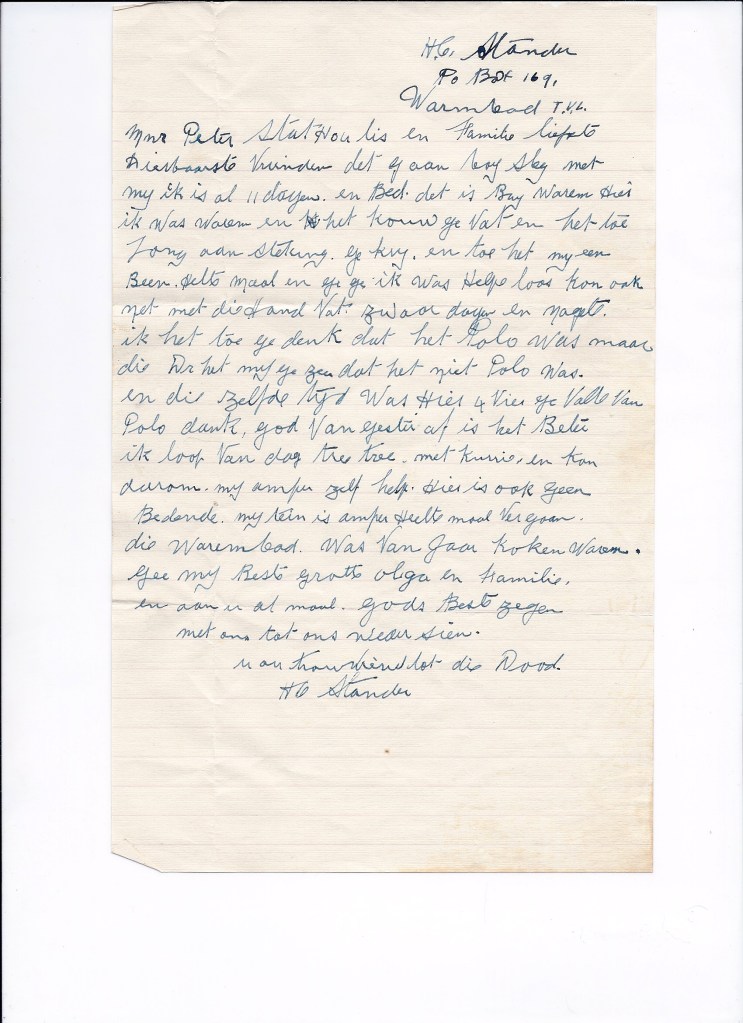 H.C. Stander
Po Box 169,
Warmbad T.V.L.
Mnr Peter StatHoulis en Familie liefste
Dierbaarste Vrinden det g aan bay Sleg met
my ik is al 11 dagen. en Bed. det is Bay Warem Hier
ik Was Warem en het kouw ge Vat en het toe
Long aan steking. ge kry. en toe het my een
Been. Helte maal en ik Was Helpe loos kon ook
net met die Hand Vat. zwaar dagen en nagte.
ik het toe ge denk dat het Polo Was maar
die Dr het my ge zeg dat het niet Polo Was.
en die zelfde tyd Was Hier 4 Vier ge Valle Van
Polo dank, god Van gester af is het Beter
ik loop Van dag tree tree. met kurrie, en kan
darom. my amper zelf help. Hier is ook geen
Bedende. my tein is amper Heelte maal Ver gaan.
die Warembad. Was Van Jaar koken Warem.
Gee my Beste groete olga en Familie,
en aan u al maal. gods Beste zegen
met ons tot ons weeder sien.
u ou trou vriend tot die Dood.
HC Stander